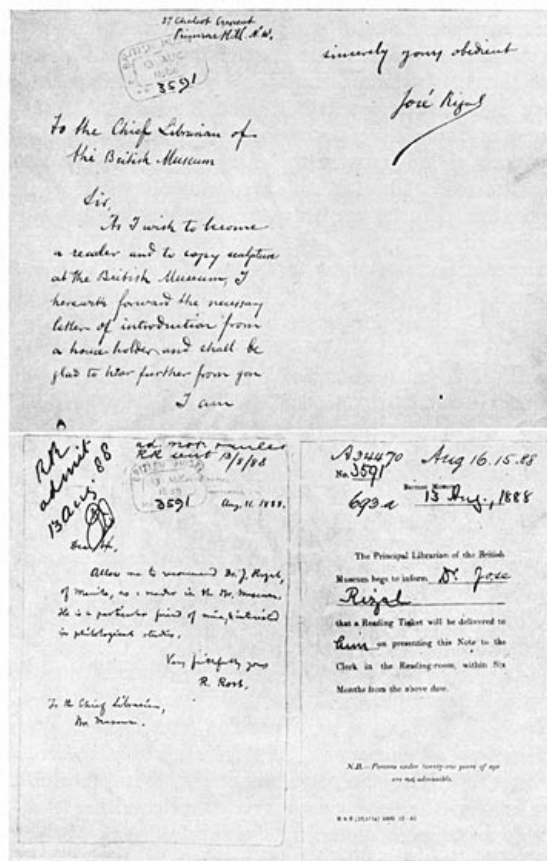 37 Chalcot Crescent
Primrose Hill N.W.
3591
To the Chief Librarian of
the British Museum
Sir,
As I wish to become
a reader and to copy sculpture
at the British Museum, I
herewith forward the necessary
letter of introduction from
a house holder, and shall be
glad to hear further from you
I am
sincerely yours obedient
José Rizal
RR
admit
13 Aug. 88
ad not. rules
RR sent 13/8/88
3591
Aug. 11. 1888.
Dear Sir,
Allow me to recommend Dr. J. Rizal,
of Manila, as a reader in the Br. Museum.
He is a particular friend of mine, & interested
in philological studies.
Very faithfully yours
R. Rost.
To the Chief Librarian,
Br. Museum.
A34470 Aug 16.15.88
No. 3591
British Museum
693a 13 Aug., 1888
The Principal Librarian of the British
Museum begs to inform Dr. Jose
Rizal
that a Reading Ticket will be delivered to
him on presenting this Note to the
Clerk in the Reading-room, within Six
Months from the above date.
N.B.—Persons under twenty-one years of age
are not admissible.